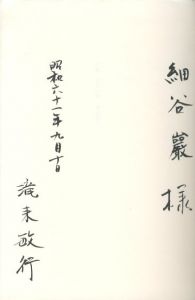 細谷巖様
昭和六十一年九月十日
滝末敏行